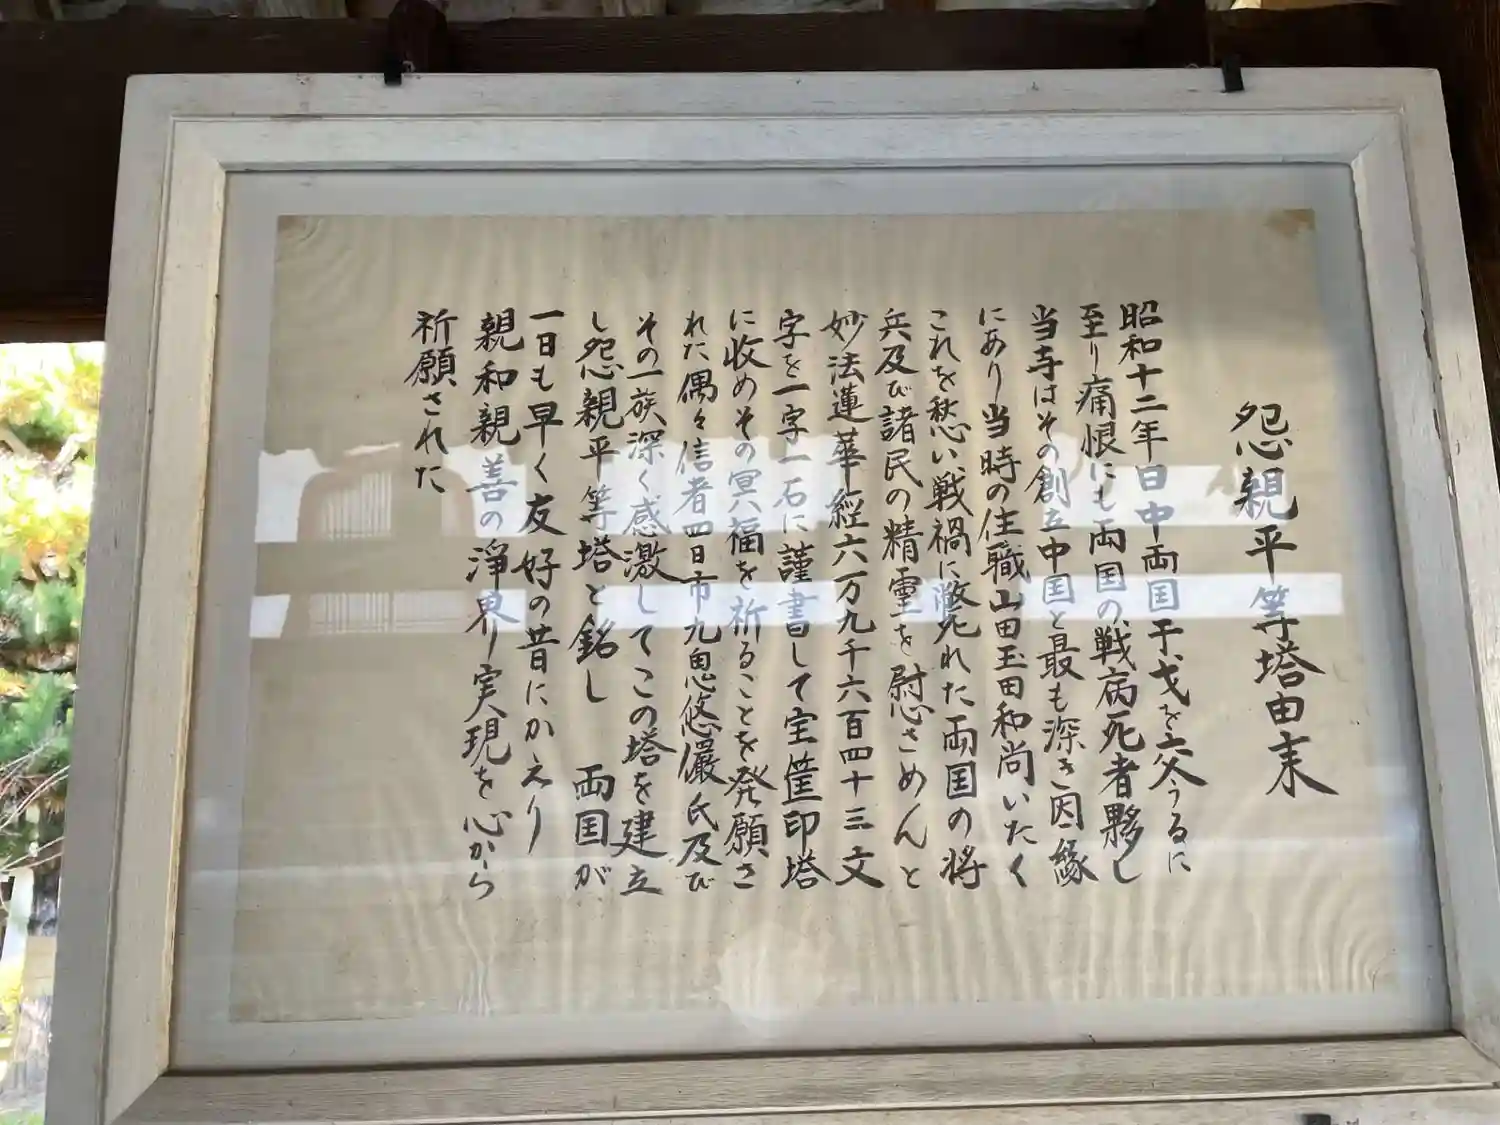 怨親平等塔由来
昭和十二年日中両国干戈を交うるに
至り痛恨にも両国の戦病死者夥し
当寺はその創立中国と最も深き因縁
にあり当時の住職山田玉田和尚いたく
これを愁い戦禍に斃れた両国の将
兵及び諸民の精霊を慰さめんと
妙法蓮華経六万九千六百四十三文
字を一字一石に謹書して宝筐印塔
に収めその冥福を祈ることを発願さ
れた偶々信者四日市九鬼悠儼氏及び
その一族深く感激してこの塔を建立
し怨親平等塔と銘し 両国が
一日も早く友好の昔にかえり
親和親善の浄界実現を心から
祈願された